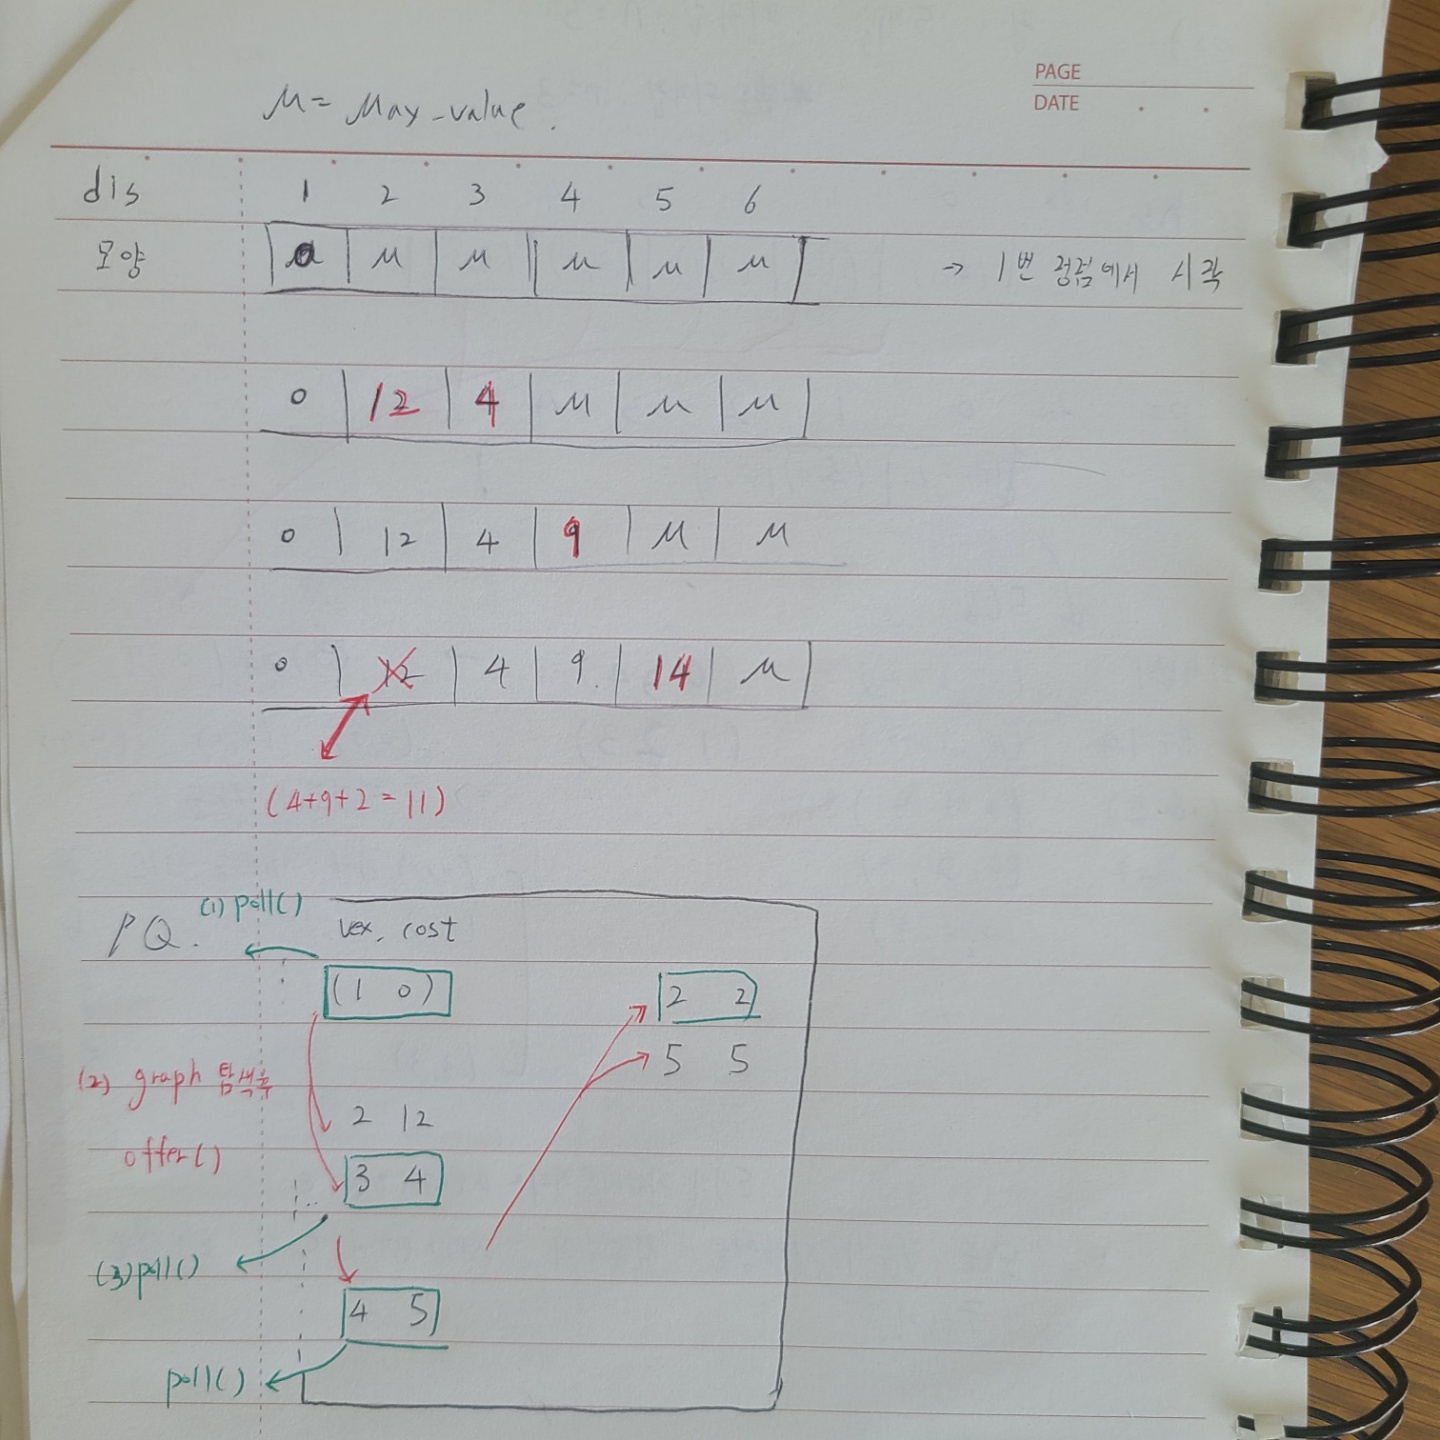 PAGE
DATE
M = Max_value.
dis 1 2 3 4 5 6
모양 0 M M M M M → 1번 정점에서 시작
0 12 4 M M M
0 12 4 9 M M
0 12 4 9 14 M
(4+9+2=11)
PQ. (1) poll() vex, cost
(1 0) 2 2
5 5
(2) graph 탐색후
2 12
offer()
3 4
(3) poll()
4 5
poll()